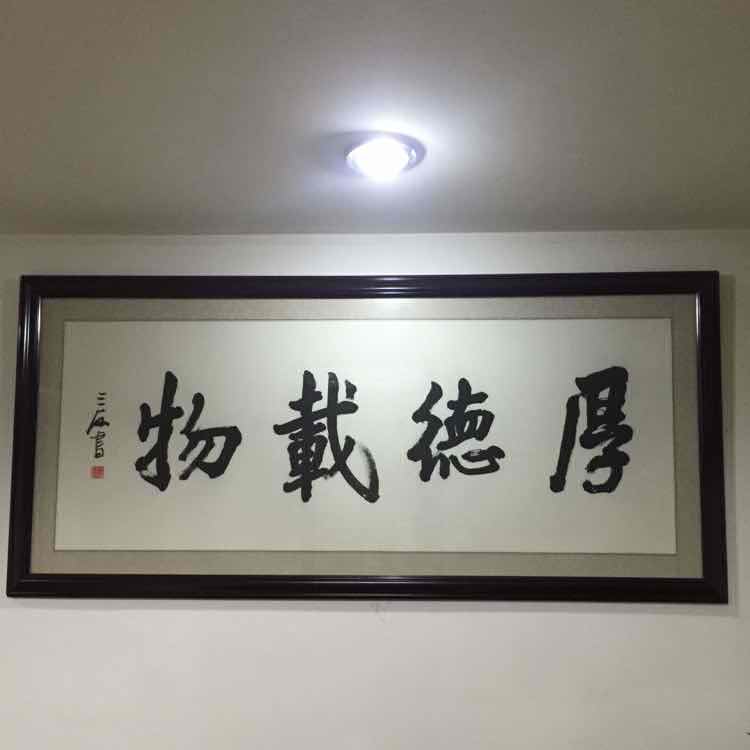 厚德載物
三石書